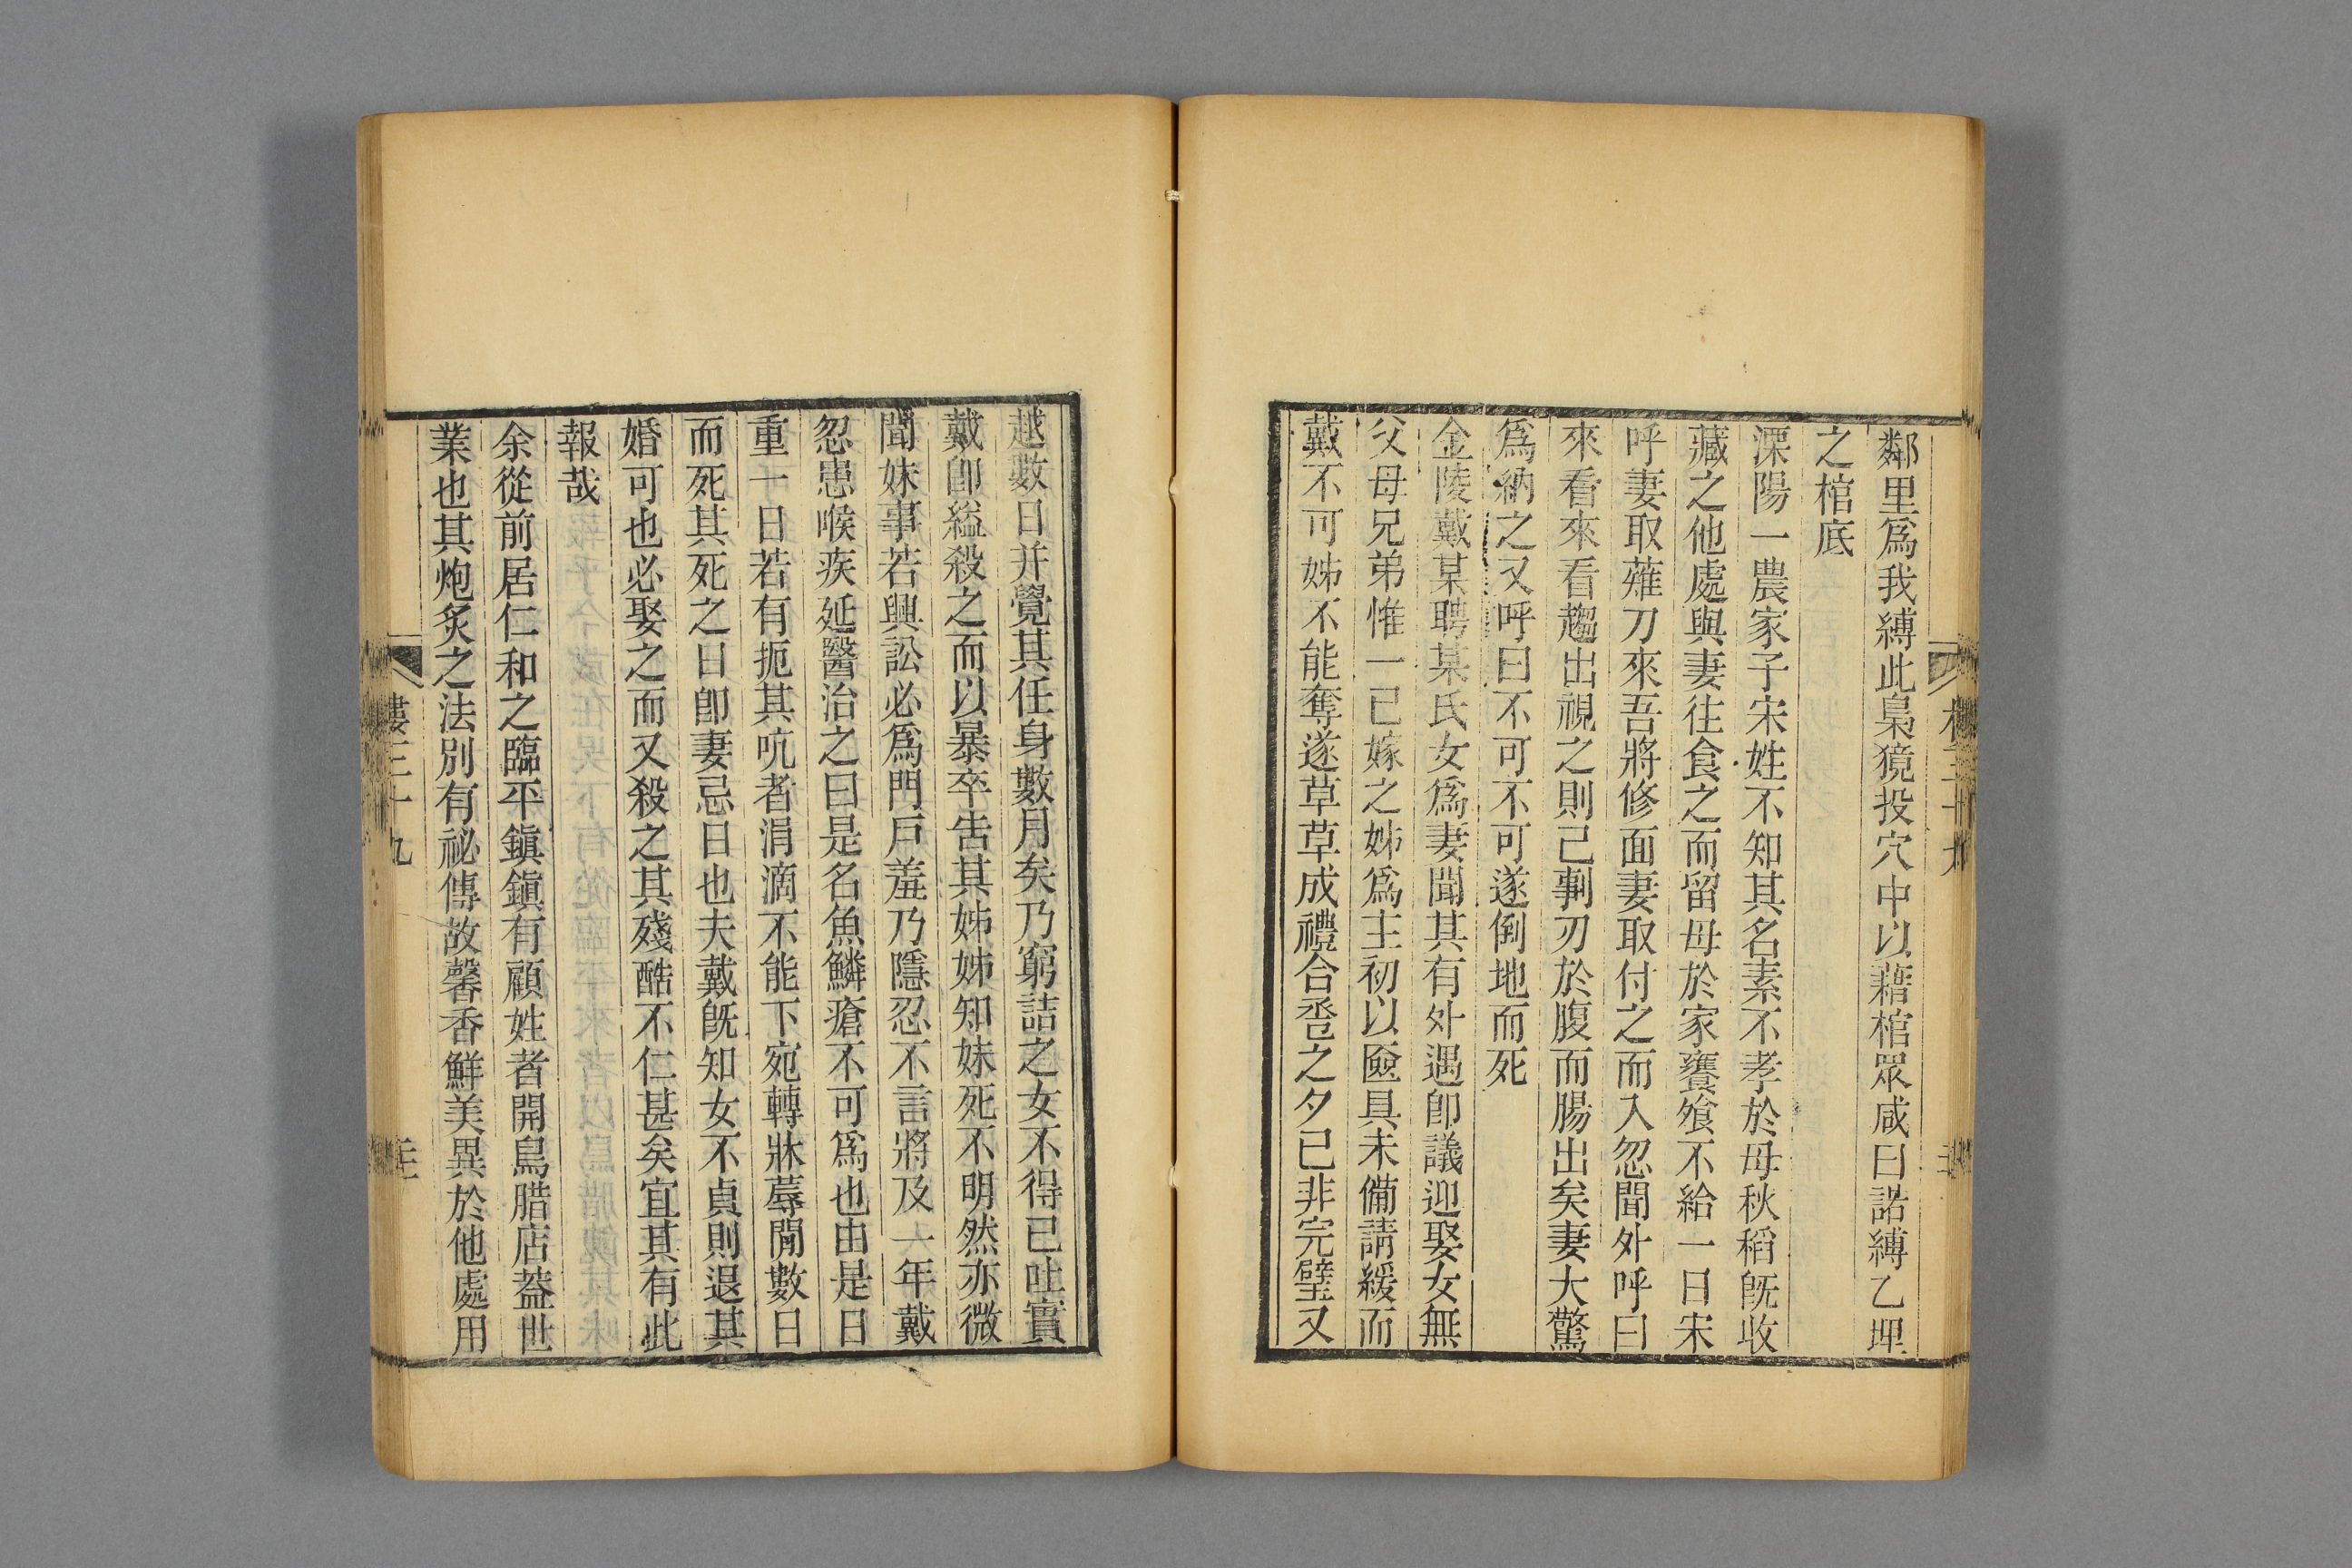 鄰里爲我縛此梟獍投穴中以藉棺眾咸曰諾縛乙埋
之棺底
溧陽一農家子宋姓不知其名素不孝於母秋稻旣收
藏之他處與妻往食之而留母於家饔飧不給一日宋
呼妻取薙刀來吾將修面妻取付之而入忽聞外呼曰
來看來看趨出視之則已剚刃於腹而腸出矣妻大驚
爲納之又呼曰不可不可遂倒地而死
金陵戴某聘某氏女爲妻聞其有外遇卽議迎娶女無
父母兄弟惟一已嫁之姊爲主初以匳具未備請緩而
戴不可姊不能奪遂草草成禮合巹之夕已非完璧又
越數日并覺其任身數月矣乃窮詰之女不得已吐實
戴卽縊殺之而以暴卒告其姊姊知妹死不明然亦微
聞妹事若興訟必爲門戶羞乃隱忍不言將及一年戴
忽患喉疾延醫治之曰是名魚鱗瘡不可爲也由是日
重一日若有扼其吭者涓滴不能下宛轉牀蓐閒數日
而死其死之日卽妻忌日也夫戴旣知女不貞則退其
婚可也必娶之而又殺之其殘酷不仁甚矣宜其有此
報哉
余從前居仁和之臨平鎭鎭有顧姓者開鳥腊店葢世
業也其炮炙之法別有祕傳故馨香鮮美異於他處用
樓三十九